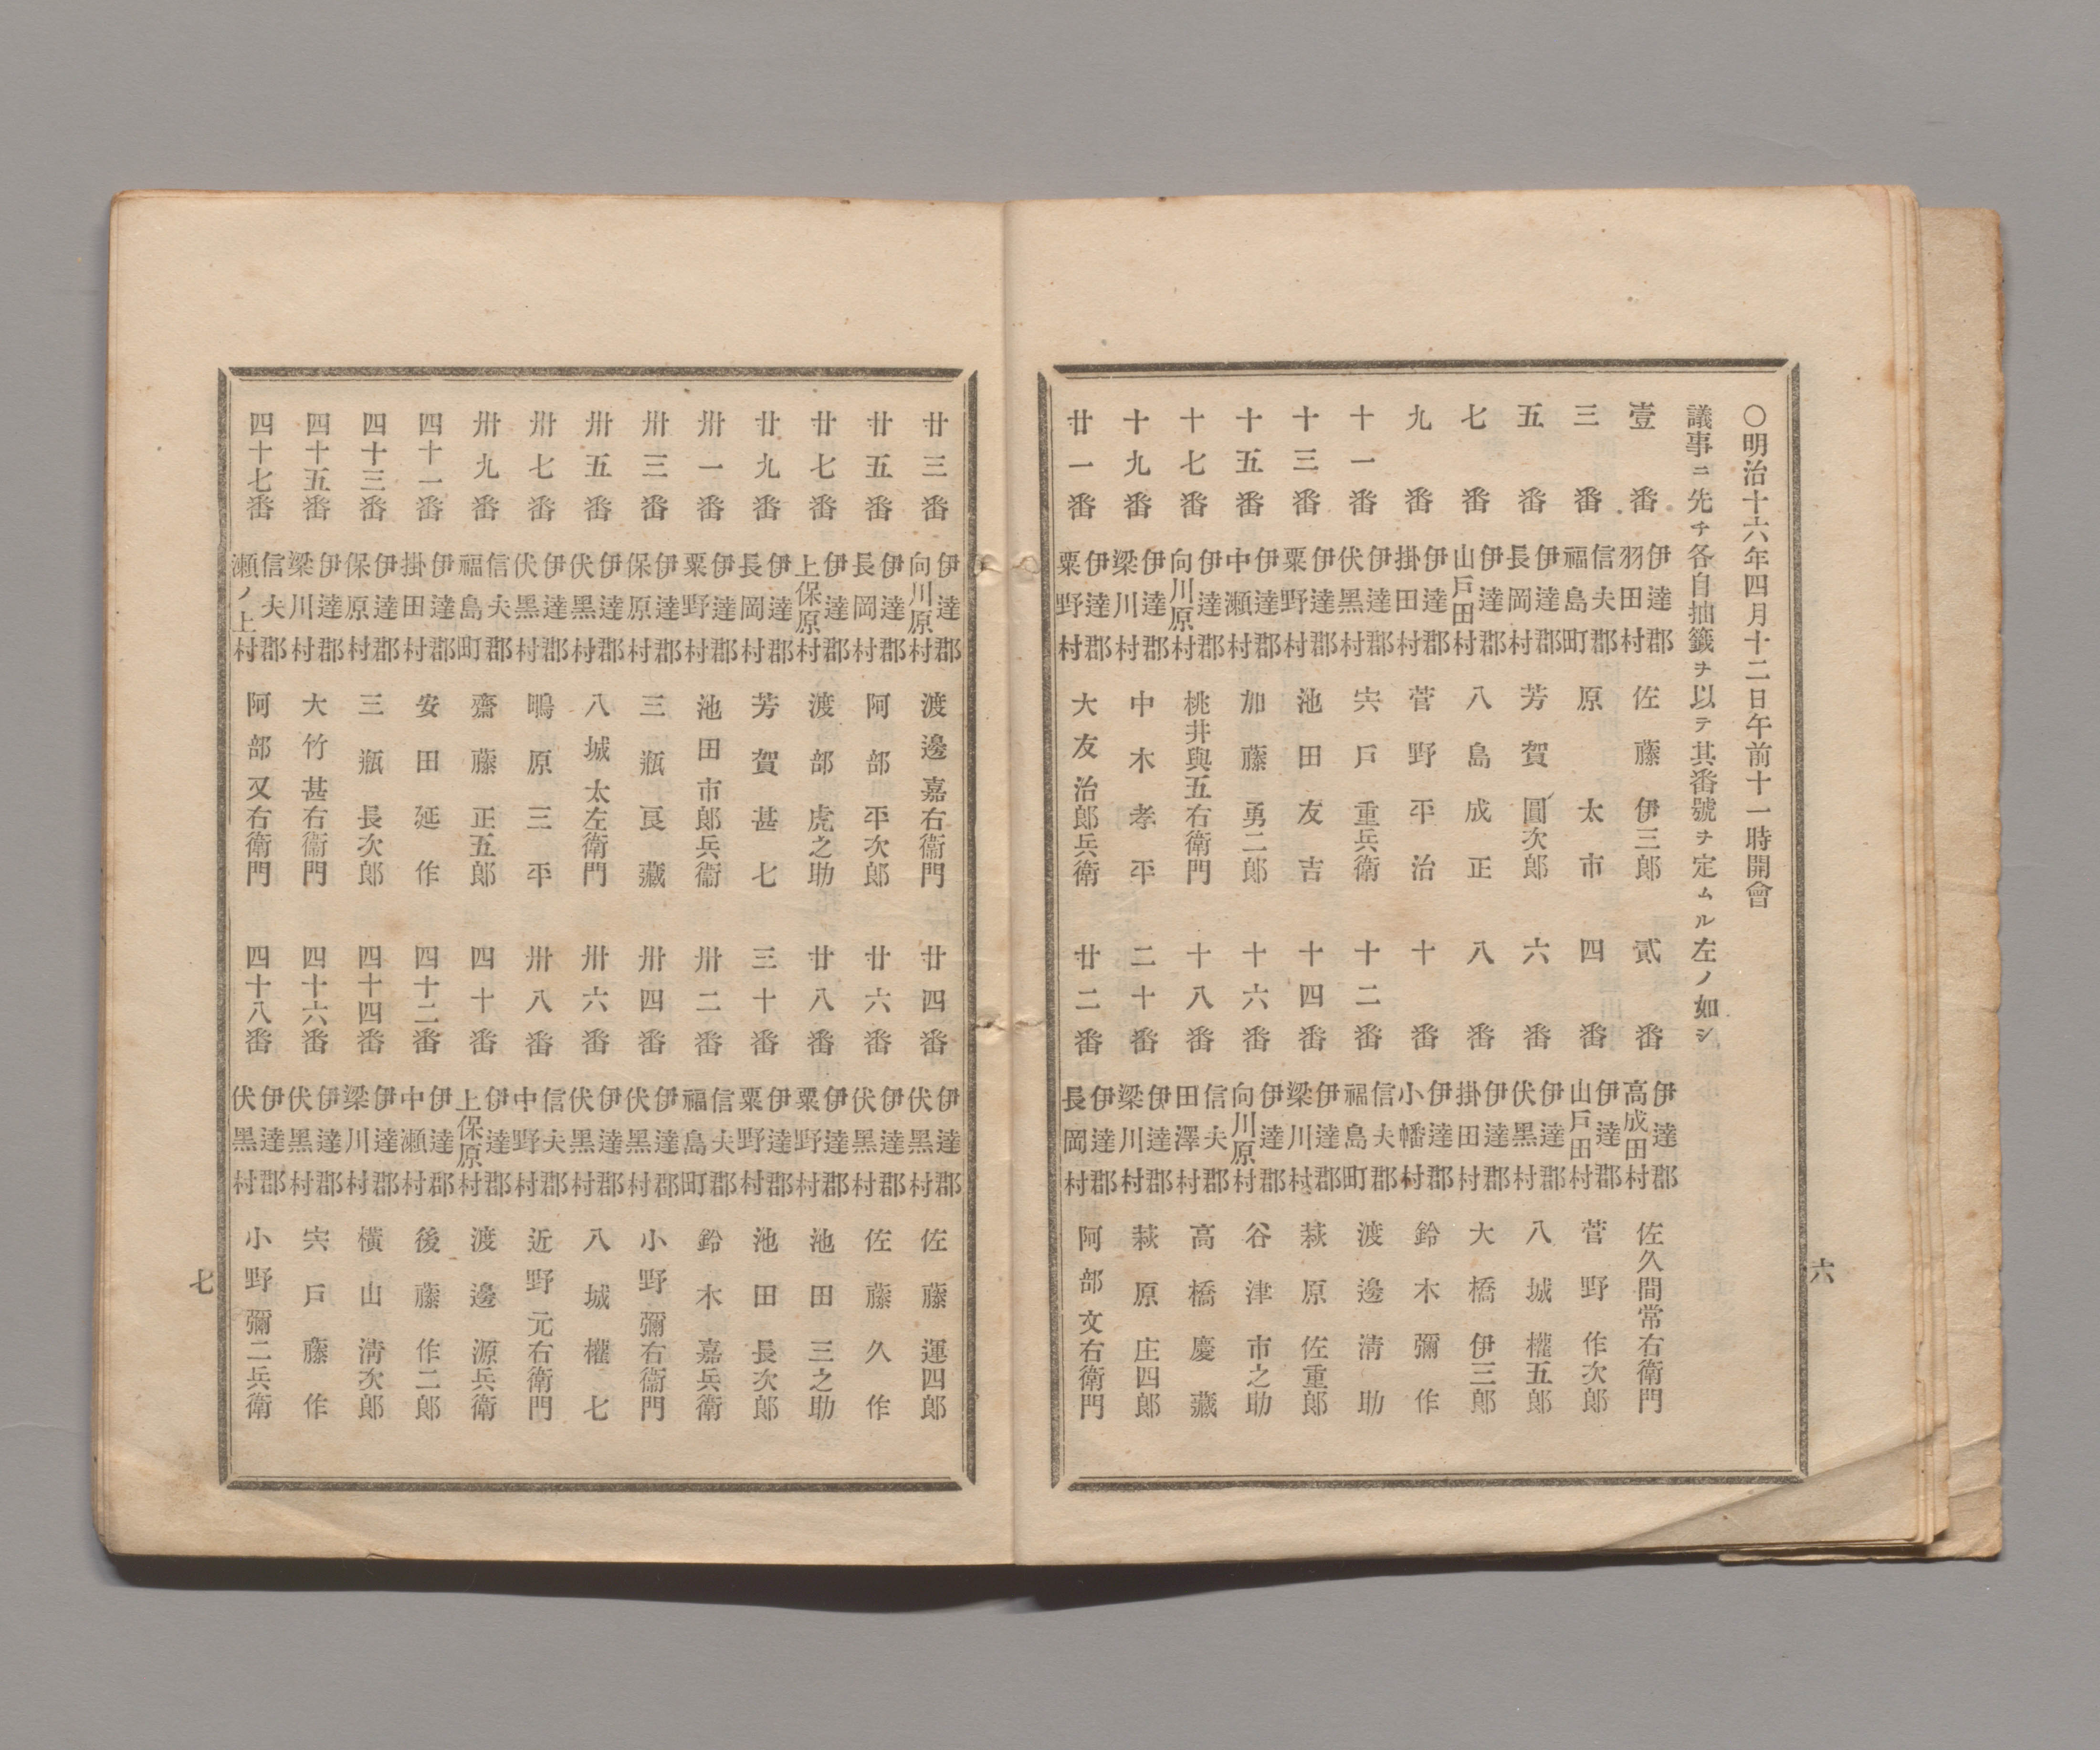 〇明治十六年四月十二日午前十一時開會
議事ニ先チ各自抽籤ヲ以テ其番號ヲ定ムル左ノ如シ
壹番 伊達郡羽田村 佐藤伊三郎 貳番 伊達郡高成田村 佐久間常右衛門
三番 信夫郡福島町 原太市 四番 伊達郡山戸田村 菅野作次郎
五番 伊達郡長岡村 芳賀圓次郎 六番 伊達郡伏黑村 八城權五郎
七番 伊達郡山戸田村 八島成正 八番 伊達郡掛田村 大橋伊三郎
九番 伊達郡掛田村 菅野平治 十番 伊達郡小幡村 鈴木彌作
十一番 伊達郡伏黑村 宍戸重兵衛 十二番 信夫郡福島町 渡邊淸助
十三番 伊達郡粟野村 池田友吉 十四番 伊達郡梁川村 萩原佐重郎
十五番 伊達郡中瀬村 加藤勇二郎 十六番 伊達郡向川原村 谷津市之助
十七番 伊達郡向川原村 桃井與五右衛門 十八番 信夫郡田澤村 高橋慶藏
十九番 伊達郡梁川村 中木孝平 二十番 伊達郡梁川村 萩原庄四郎
廿一番 伊達郡粟野村 大友治郎兵衛 廿二番 伊達郡長岡村 阿部文右衛門
六
廿三番 伊達郡向川原村 渡邊嘉右衞門 廿四番 伊達郡伏黑村 佐藤運四郎
廿五番 伊達郡長岡村 阿部平次郎 廿六番 伊達郡伏黑村 佐藤久作
廿七番 伊達郡上保原村 渡部虎之助 廿八番 伊達郡粟野村 池田三之助
廿九番 伊達郡長岡村 芳賀甚七 三十番 伊達郡粟野村 池田長次郎
卅一番 伊達郡粟野村 池田市郎兵衞 卅二番 信夫郡福島町 鈴木嘉兵衛
卅三番 伊達郡保原村 三瓶良藏 卅四番 伊達郡伏黑村 小野彌右衞門
卅五番 伊達郡伏黑村 八城太左衛門 卅六番 伊達郡伏黑村 八城權七
卅七番 伊達郡伏黑村 鴫原三平 卅八番 信夫郡中野村 近野元右衛門
卅九番 信夫郡福島町 齋藤正五郎 四十番 伊達郡上保原村 渡邊源兵衛
四十一番 伊達郡掛田村 安田延作 四十二番 伊達郡中瀬村 後藤作二郎
四十三番 伊達郡保原村 三瓶長次郎 四十四番 伊達郡梁川村 橫山淸次郎
四十五番 伊達郡梁川村 大竹甚右衞門 四十六番 伊達郡伏黑村 宍戸藤作
四十七番 信夫郡瀬ノ上村 阿部又右衛門 四十八番 伊達郡伏黑村 小野彌二兵衛
七